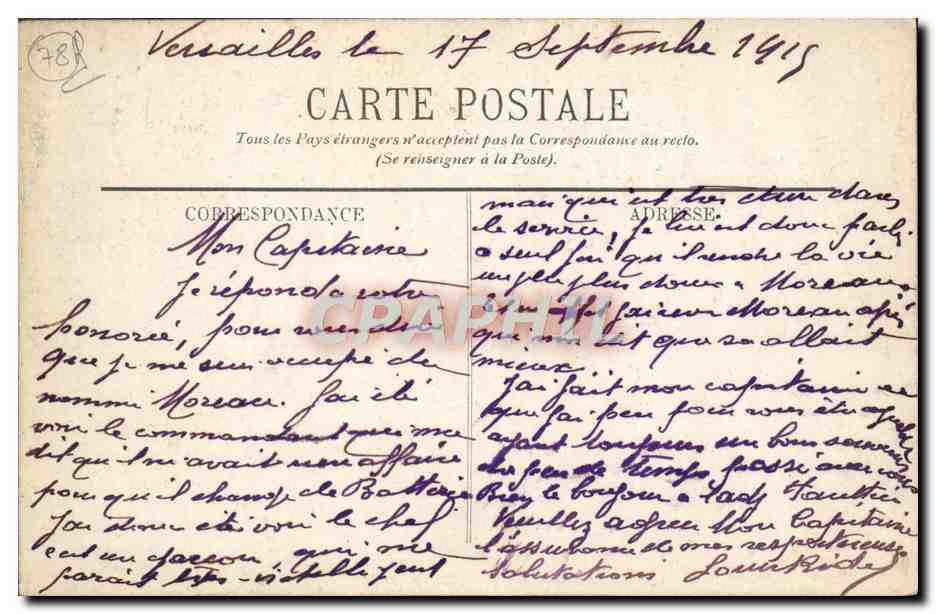 78
Versailles le 17 Septembre 1915
CARTE POSTALE
Tous les Pays étrangers n'acceptent pas la Correspondance au recto.
(Se renseigner à la Poste).
CORRESPONDANCE
Mon Capitaine
Je réponds a votre
honorée, pour vous dire
que je me suis occupé du
nommé Moreau. J'ai été
voir le commandant qui me
dit qu'il m'avait
pour qu'il change de Batterie
J'ai donc été voir le chef
c'est un garçon qui me
parait très
ADRESSE
mais qui est très dur dans
le service, je lui est donc parlé
a seul fin qu'il rende la vie
un peu plus douce a Moreau
j'ai vu Moreau après
qui m'a dit que sa allait
mieux.
J'ai fait mon capitaine ce
que j'ai peu pour vous être agréable
ayant toujours un bon souvenir
du peu de temps passé avec vous
Bien le bonjour a l'adjt
Veuillez agréer Mon Capitaine
l'assurance de mes respectueuses
Salutations Louis
CPAPHIL